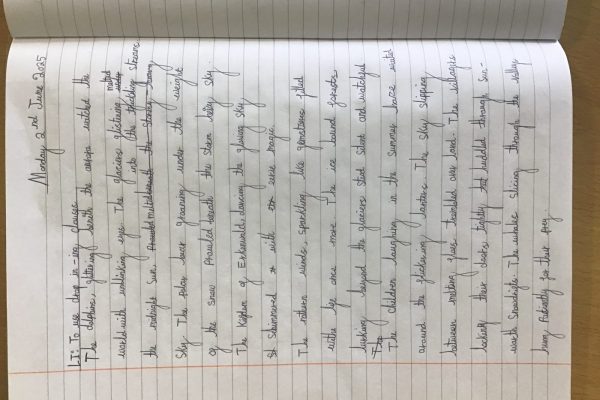 Monday 2nd June 2025
LI: To use drop in -ing clauses
The dolphins, glittering beneath the aurora watched the
world with unblinking eyes. The glaciers, glistening melted
the midnight sun, into the trickling streams
sky. The polar bear groaning under the weight
of the snow prowled beneath the storm sky.
The Kingdom of dancing the glowing sky
shimmered with eerie magic.
The northern winds, sparkling like gemstones filled
with ice once more. The ice bound forests
lurking beyond the glaciers stood silent and watchful
The Children laughing in the summer haze
around the flickering lanterns. The sky slipping
between melting tumbled over land. The villagers
their cloaks tightly huddled through sun-
warm snowdrifts. The slicing through the valley
hung patiently for their prey